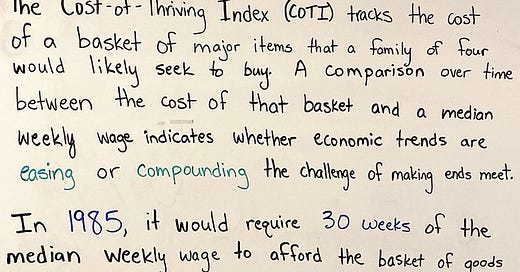 The Cost-of-Thriving Index (COTI) tracks the cost
of a basket of major items that a family of four
would likely seek to buy. A comparison over time
between the cost of that basket and a median
weekly wage indicates whether economic trends are
easing or compounding the challenge of making ends meet.
In 1985, it would require 30 weeks of the
median weekly wage to afford the basket of goods